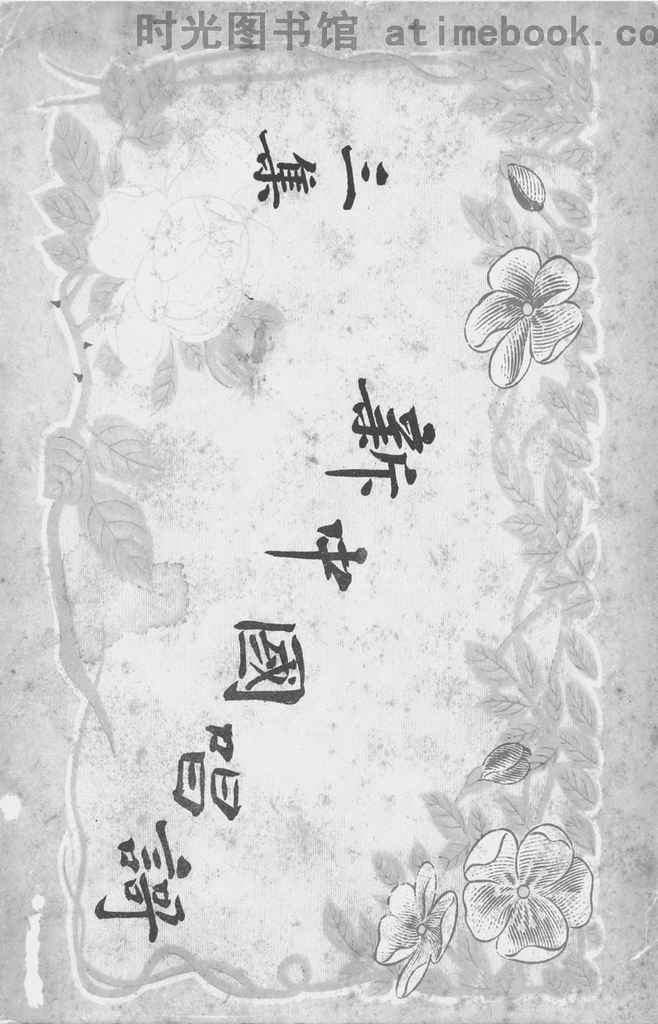 时光图书馆 atimebook.co
三集
新中國唱謌